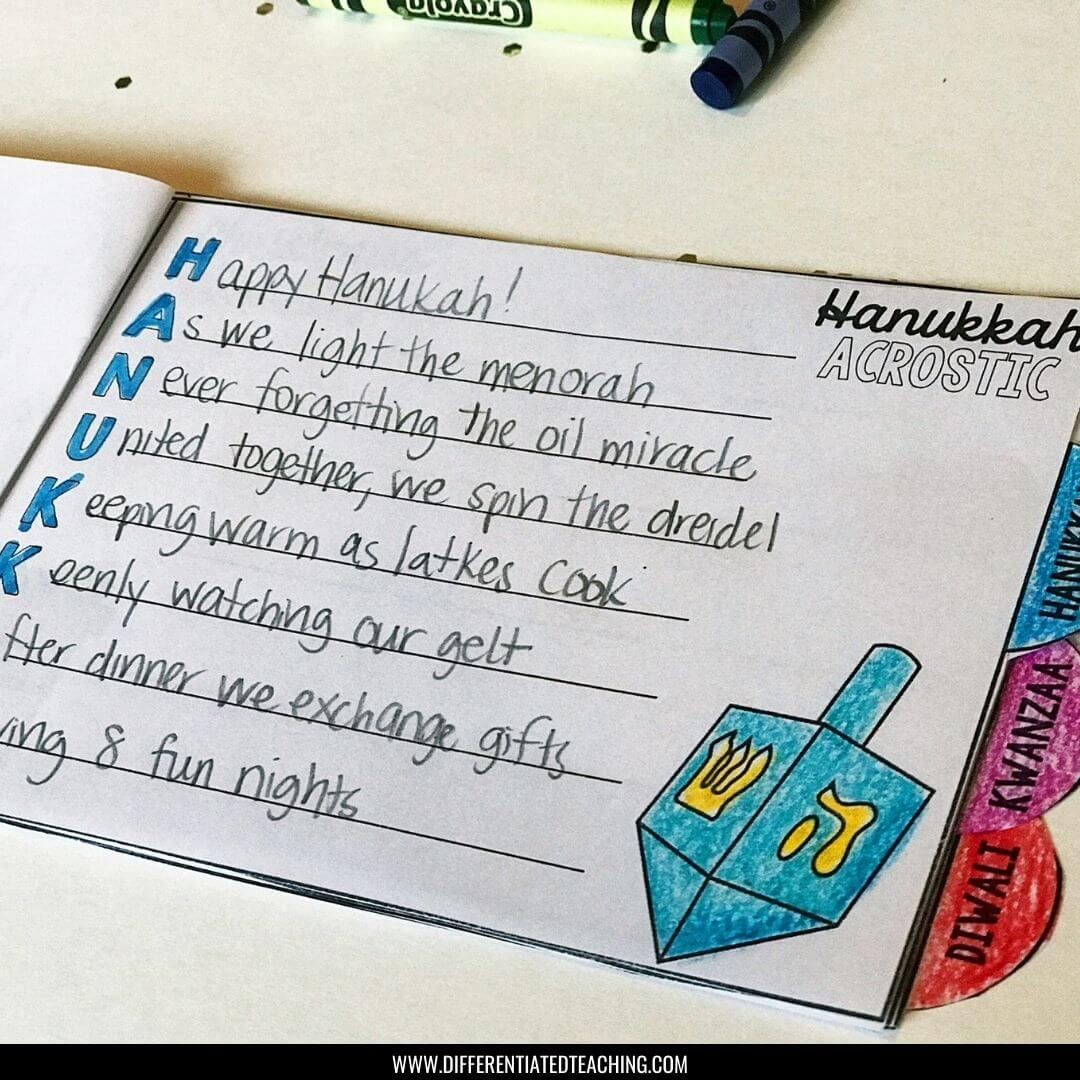 Crayola
Hanukkah
ACROSTIC
Happy Hanukah!
As we light the menorah
Never forgetting the oil miracle
United together, we spin the dreidel
Keeping warm as latkes cook
Keenly watching our gelt
fter dinner we exchange gifts
ving 8 fun nights
ש
ה
HANUKKA
KWANZAA
DIWALI
WWW.DIFFERENTIATEDTEACHING.COM